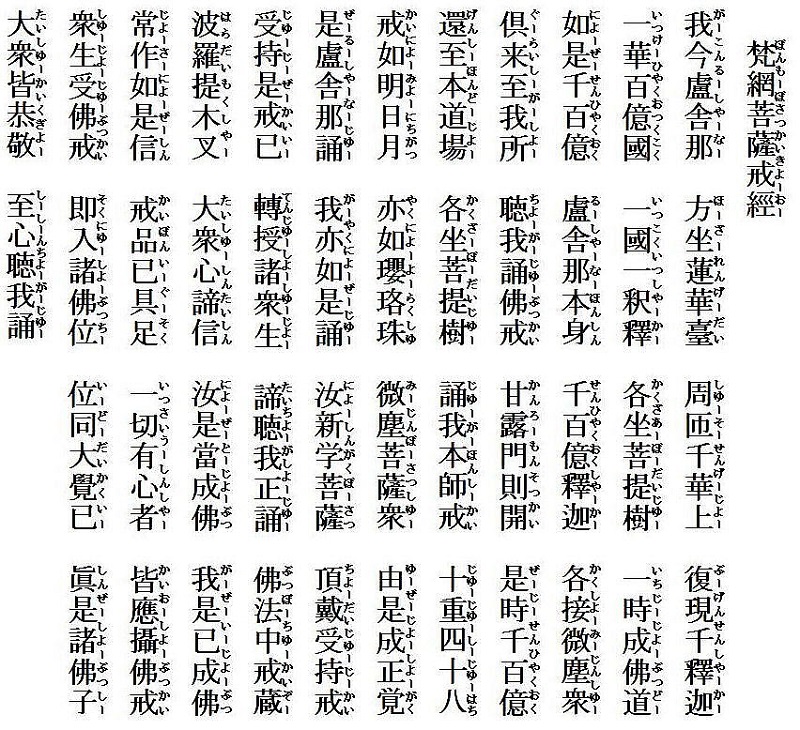 梵網菩薩戒經
我今盧舎那 方坐蓮華臺 周匝千華上 復現千釋迦
一華百億國 一國一釈釋 各坐菩提樹 一時成佛道
如是千百億 盧舎那本身 千百億釋迦 各接微塵衆
倶来至我所 聴我誦佛戒 甘露門則開 是時千百億
還至本道場 各坐菩提樹 誦我本師戒 十重四十八
戒如明日月 亦如瓔珞珠 微塵菩薩衆 由是成正覚
是盧舎那誦 我亦如是誦 汝新学菩薩 頂戴受持戒
受持是戒已 轉授諸衆生 諦聴我正誦 佛法中戒蔵
波羅提木叉 大衆心諦信 汝是當成佛 我是已成佛
常作如是信 戒品已具足 一切有心者 皆應攝佛戒
衆生受佛戒 即入諸佛位 位同大覺已 眞是諸佛子
大衆皆恭敬 至心聴我誦